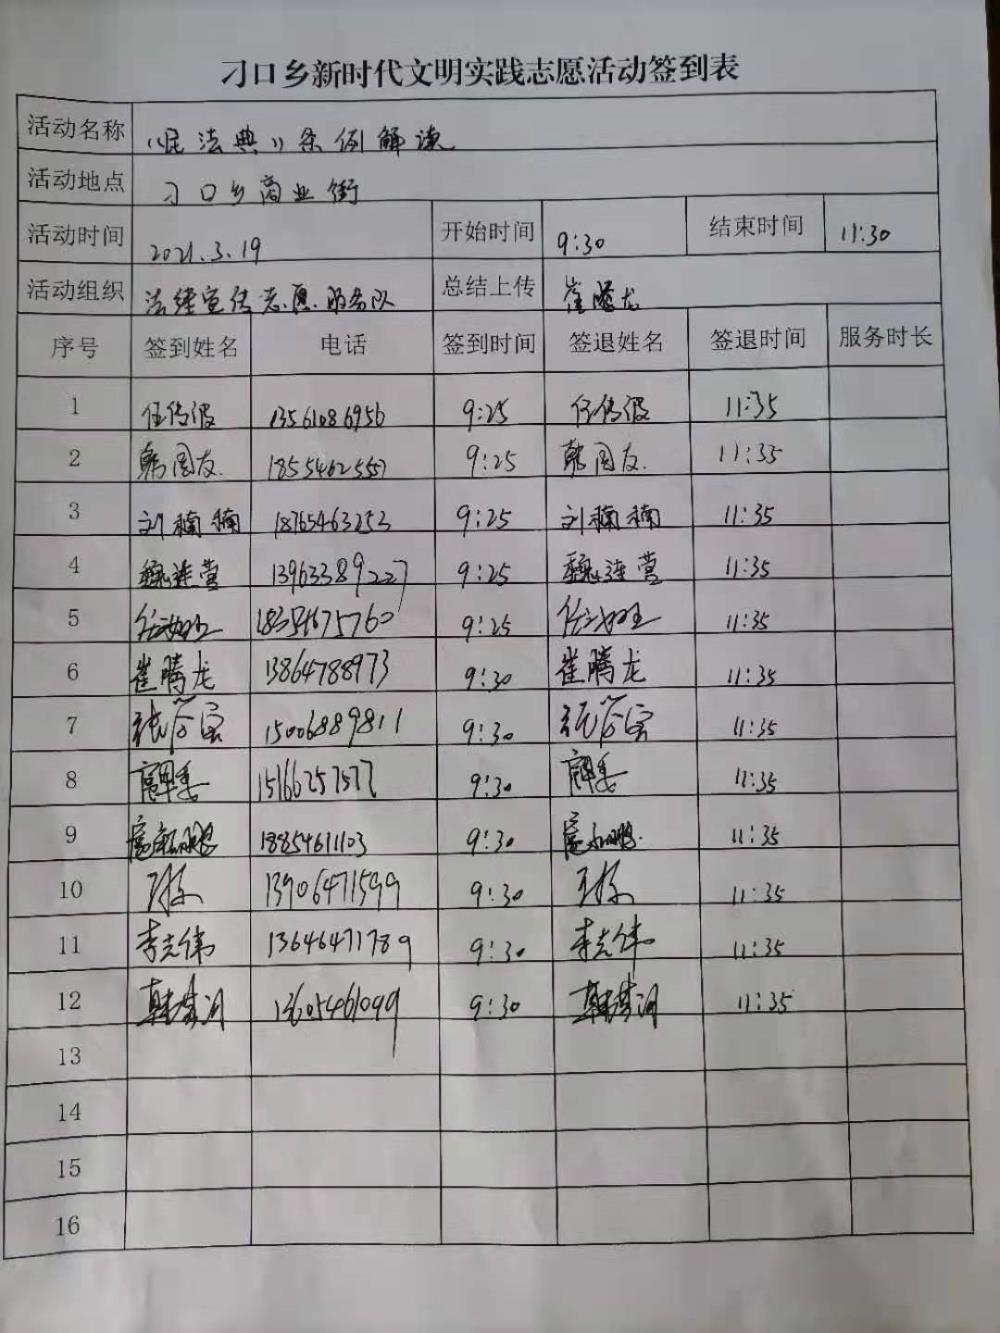 刁口乡新时代文明实践志愿活动签到表
活动名称 《民法典》条例解读
活动地点 刁口乡商业街
活动时间 2021.3.19 开始时间 9:30 结束时间 11:30
活动组织 法律宣传志愿服务队 总结上传 崔腾龙
序号 签到姓名 电话 签到时间 签退姓名 签退时间 服务时长
1 任传波 13561086956 9:25 任传波 11:35
2 韩国友 18554625557 9:25 韩国友 11:35
3 刘楠楠 18765463252 9:25 刘楠楠 11:35
4 魏连营 13963389227 9:25 魏连营 11:35
5 9:25 11:35
6 崔腾龙 13864788973 9:30 崔腾龙 11:35
7 15006889811 9:30 11:35
8 15166257577 9:30 11:35
9 18854611103 9:30 11:35
10 13906471599 9:30 11:35
11 李志伟 13646471789 9:30 李志伟 11:35
12 13605461099 9:30 11:35
13
14
15
16